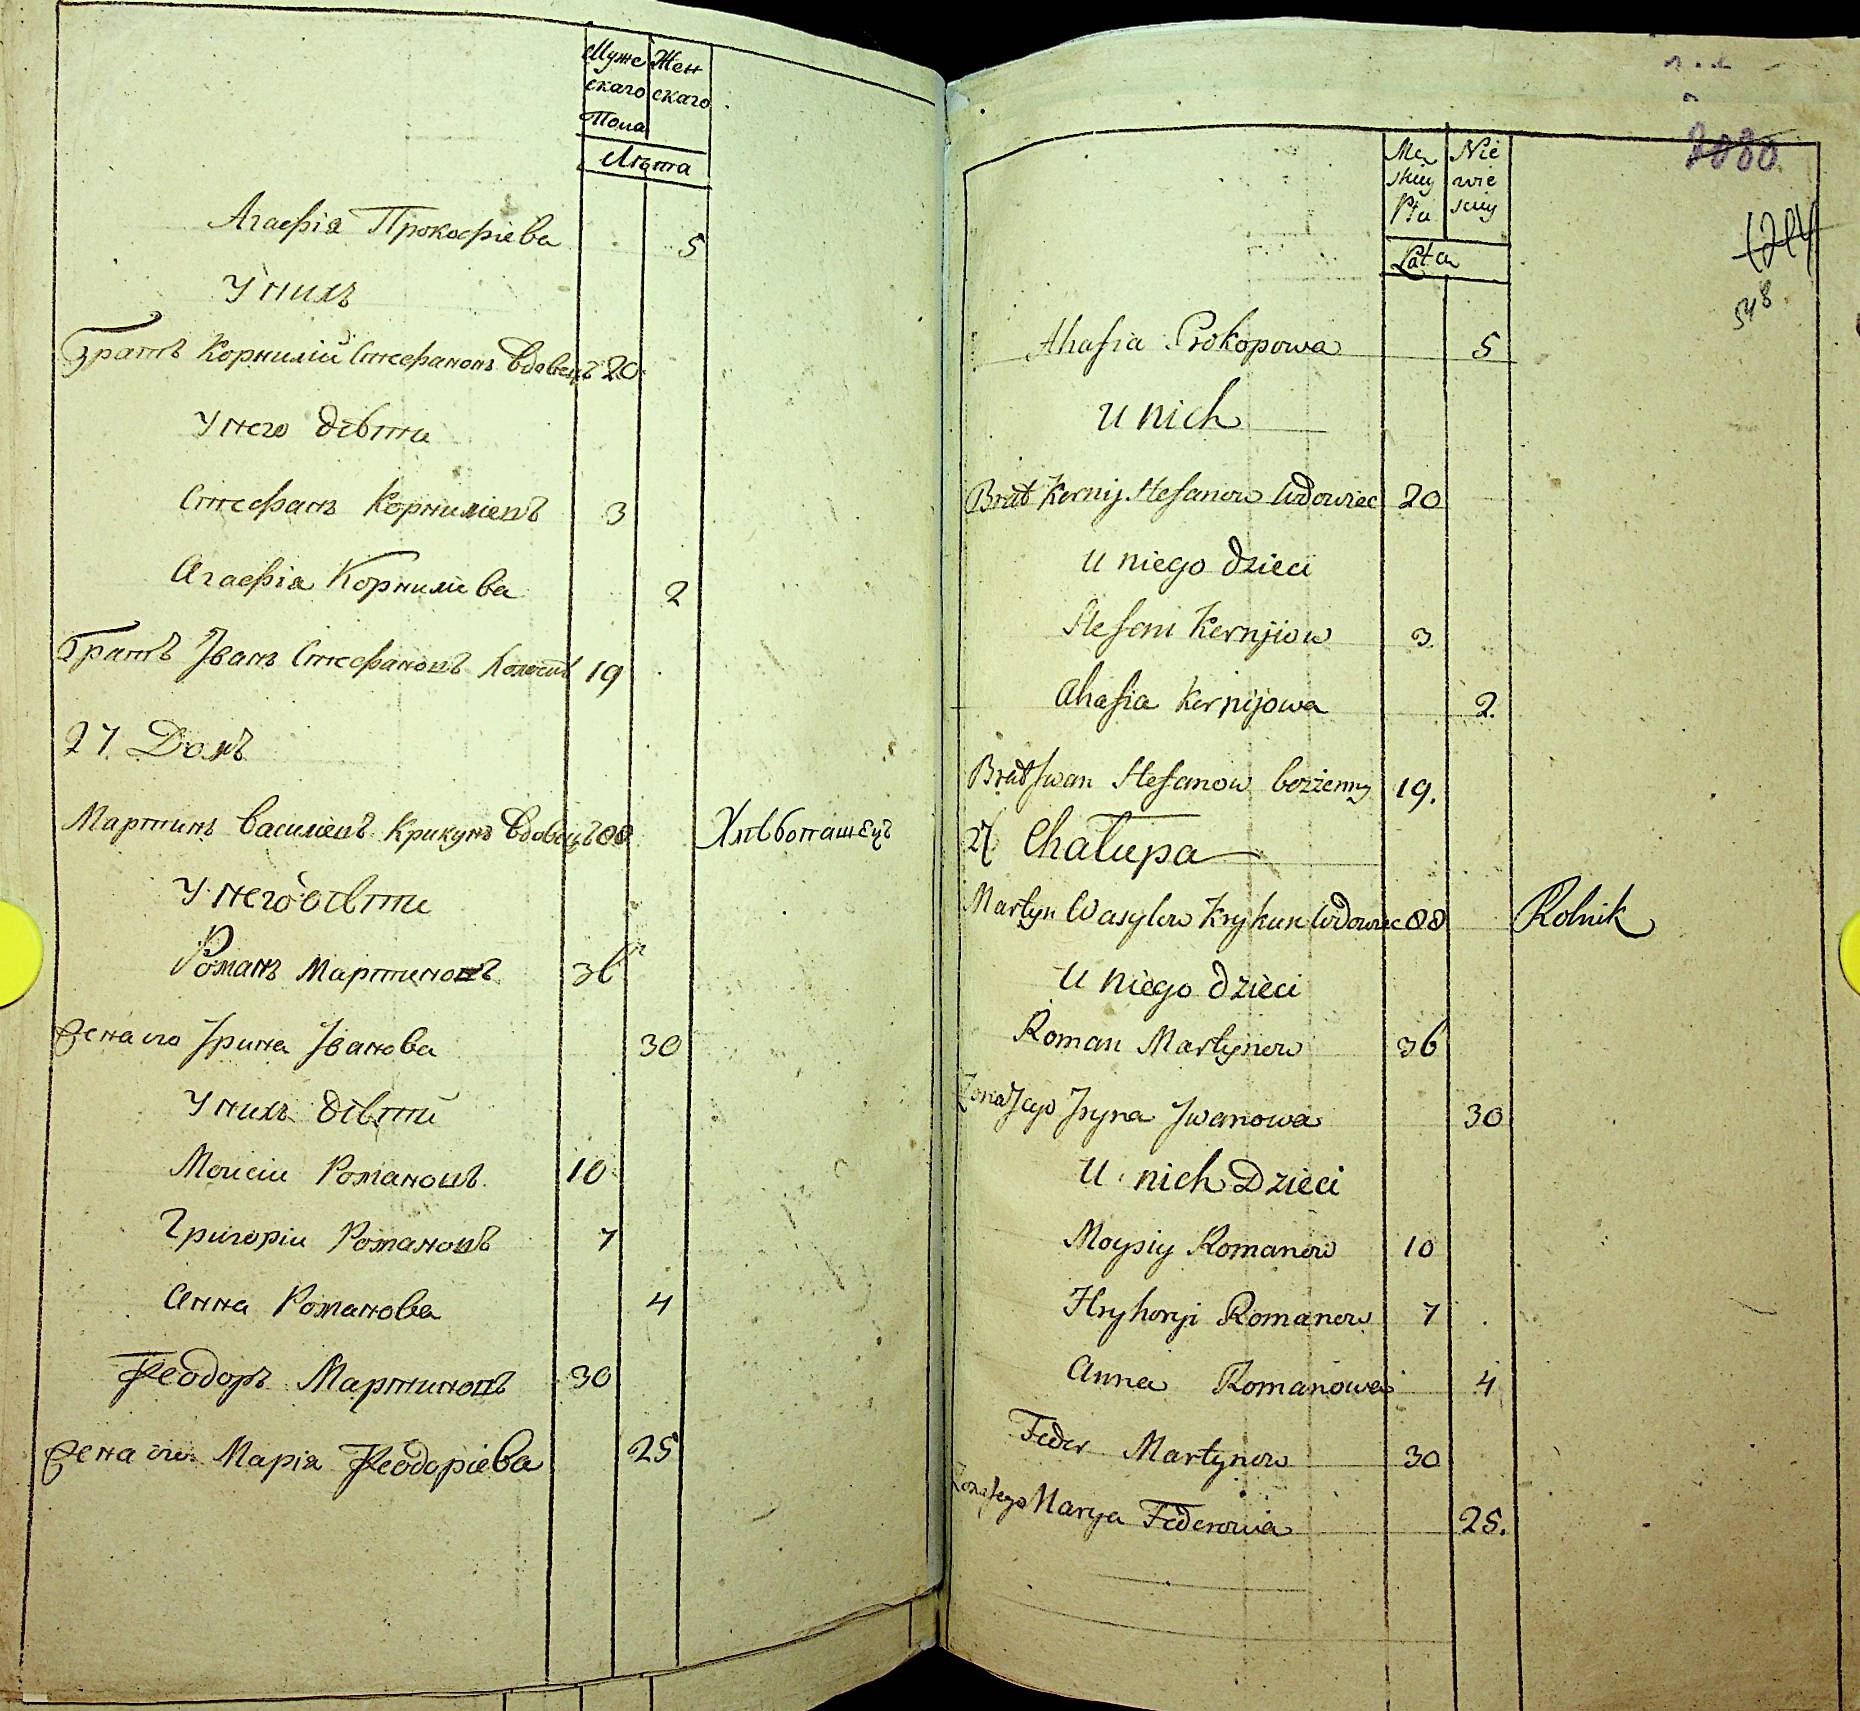 Муже Жен
скаго скаго
Пола
Лѣта
Агафія Прокофіева 5
У нихъ
Братъ Корнилій Стефановъ вдовецъ 20
У него дѣти
Стефанъ Корниліевъ 3
Агафія Корнилиева 2
Братъ Іванъ Стефановъ холостъ 19
27 Домъ
Мартинъ Василіевъ Крикунъ вдовецъ 88 Хлѣбопашецъ
У него дѣти
Романъ Мартиновъ 36
Жена его Ірина Іванова 30
У нихъ дѣти
Моисіи Романовъ 10
Григоріи Романовъ 7
Анна Романова 4
Феодоръ Мартиновъ 30
Жена его Марія Феодоріева 25
2080
Mę Nie
skiey wie
Płu sciey
Lata
(214)
548
Ahafia Prokopowa 5
U nich
Brat Kernij Stefanow Wdowiec 20
U niego dzieci
Stefan Kernijow 3
Ahafia Kernijowa 2.
Brat Jwan Stefanow bezżenny 19.
27 Chałupa
Martyn Wasylow Krykun Wdowiec 88 Rolnik
U niego dzieci
Roman Martynow 36
Żona Jego Jryna Jwanowa 30
U nich Dzieci
Moysiy Romanow 10
Hryhoryi Romanow 7
Anna Romanowa 4
Fedor Martynow 30
Żona Jego Marya Fedorowa 25.